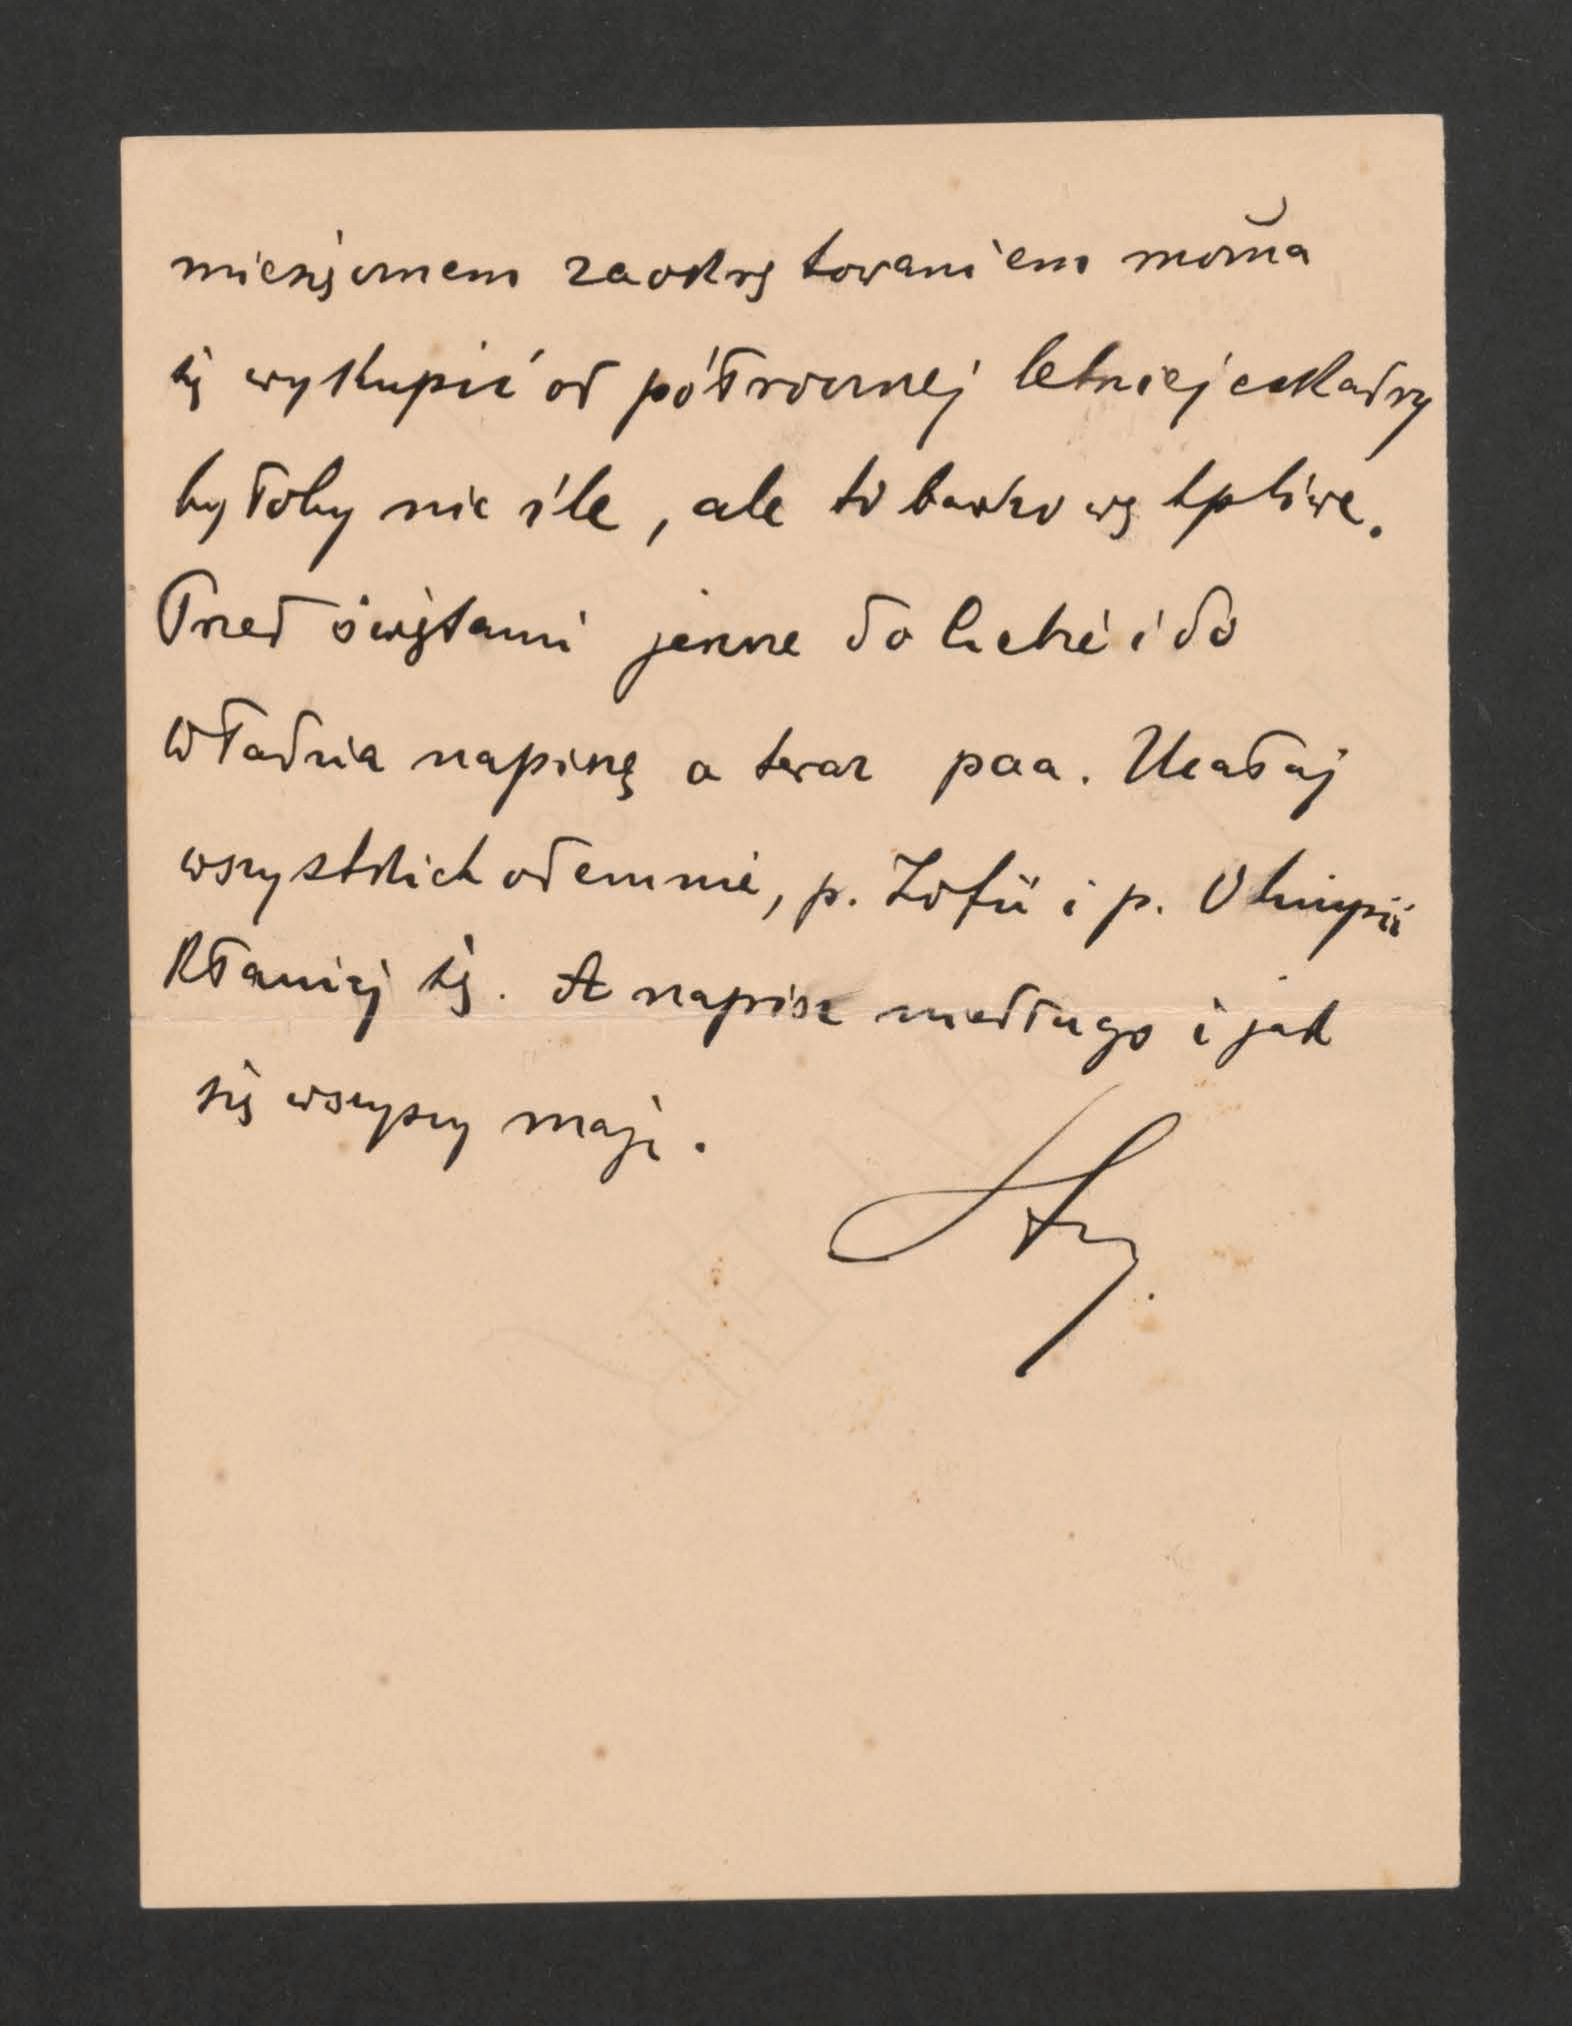 miesięcznem zaokrętowaniem można
się wykupić od półrocznej letniej eskadry
byłoby nie źle, ale to bardzo wątpliwe.
Przed świętami jeszcze do Ciebie i do
Władzia napiszę a teraz paa. Ucałuj
wszystkich odemnie, p. Zofii i p. Olimpii
kłaniaj się. A napisz niedługo i jak
się wszyscy mają.